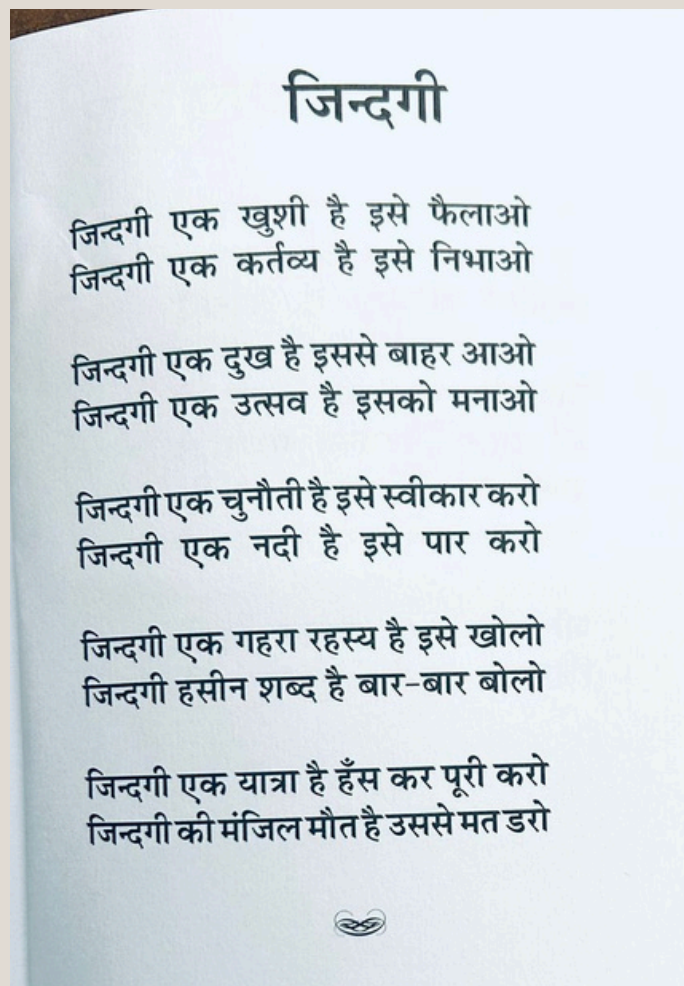 जिन्दगी
जिन्दगी एक खुशी है इसे फैलाओ
जिन्दगी एक कर्तव्य है इसे निभाओ
जिन्दगी एक दुख है इससे बाहर आओ
जिन्दगी एक उत्सव है इसको मनाओ
जिन्दगी एक चुनौती है इसे स्वीकार करो
जिन्दगी एक नदी है इसे पार करो
जिन्दगी एक गहरा रहस्य है इसे खोलो
जिन्दगी हसीन शब्द है बार-बार बोलो
जिन्दगी एक यात्रा है हँस कर पूरी करो
जिन्दगी की मंजिल मौत है उससे मत डरो